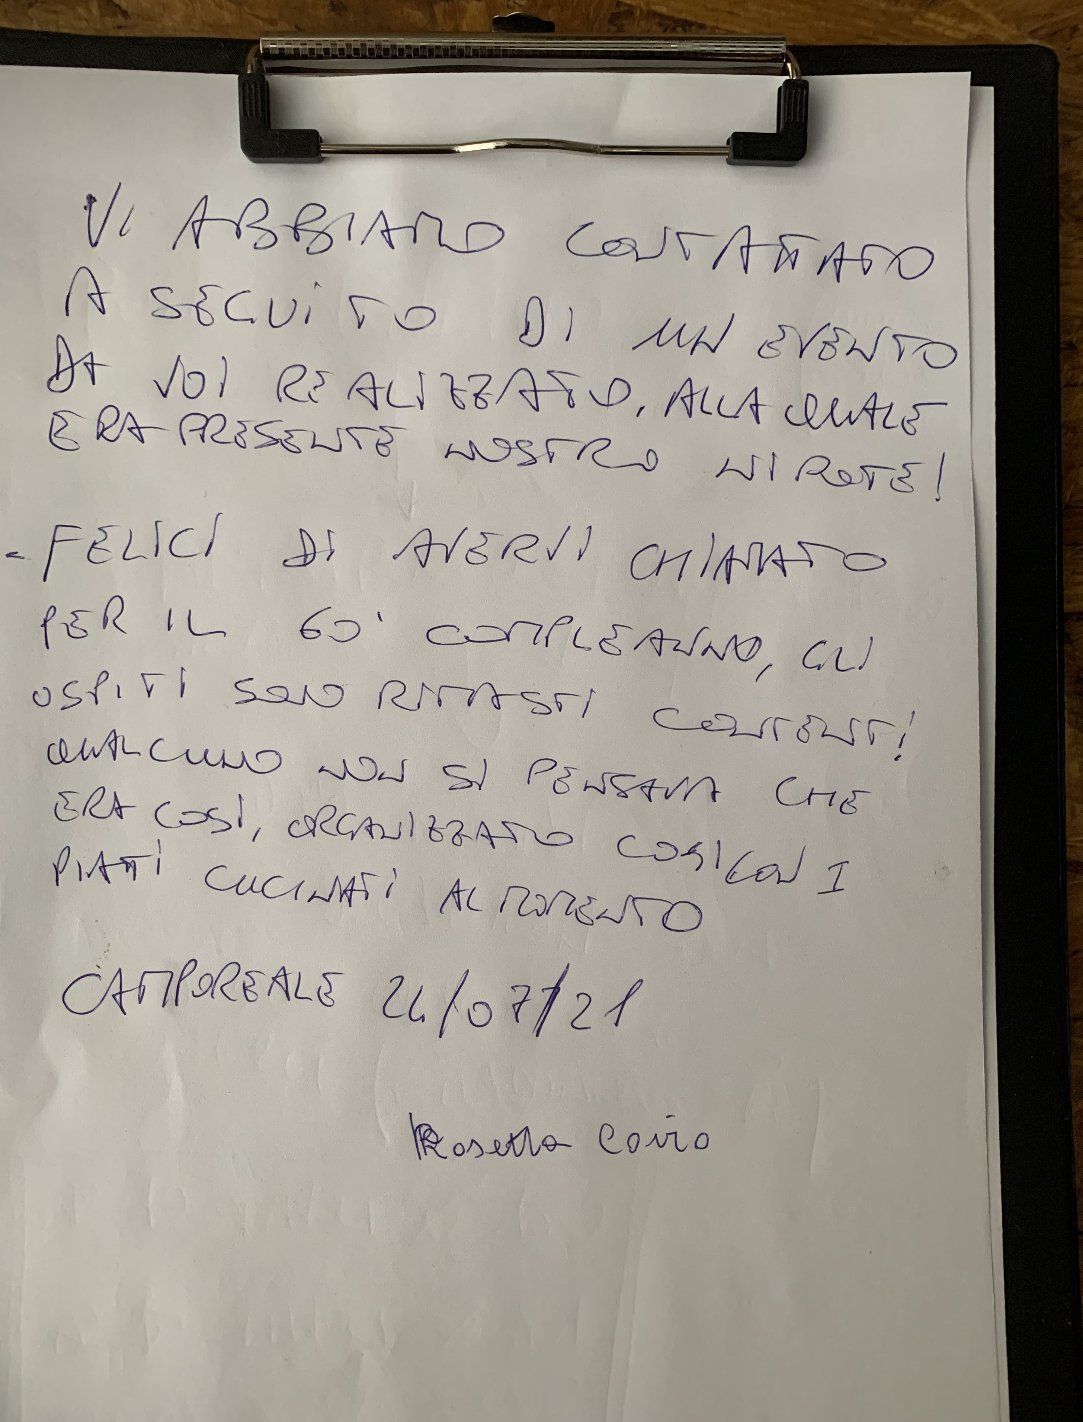 VI ABBIAMO CONTATTATO
A SEGUITO DI UN EVENTO
DA VOI REALIZZATO, ALLA QUALE
ERA PRESENTE NOSTRO NIPOTE!
- FELICI DI AVERVI CHIAMATO
PER IL 60' COMPLEANNO, GLI
OSPITI SONO RIMASTI CONTENTI!
QUALCUNO NON SI PENSAVA CHE
ERA COSÌ, ORGANIZZATO COSÌ CON I
PIATTI CUCINATI AL MOMENTO
CAMPOREALE 24/07/21
Rosetta